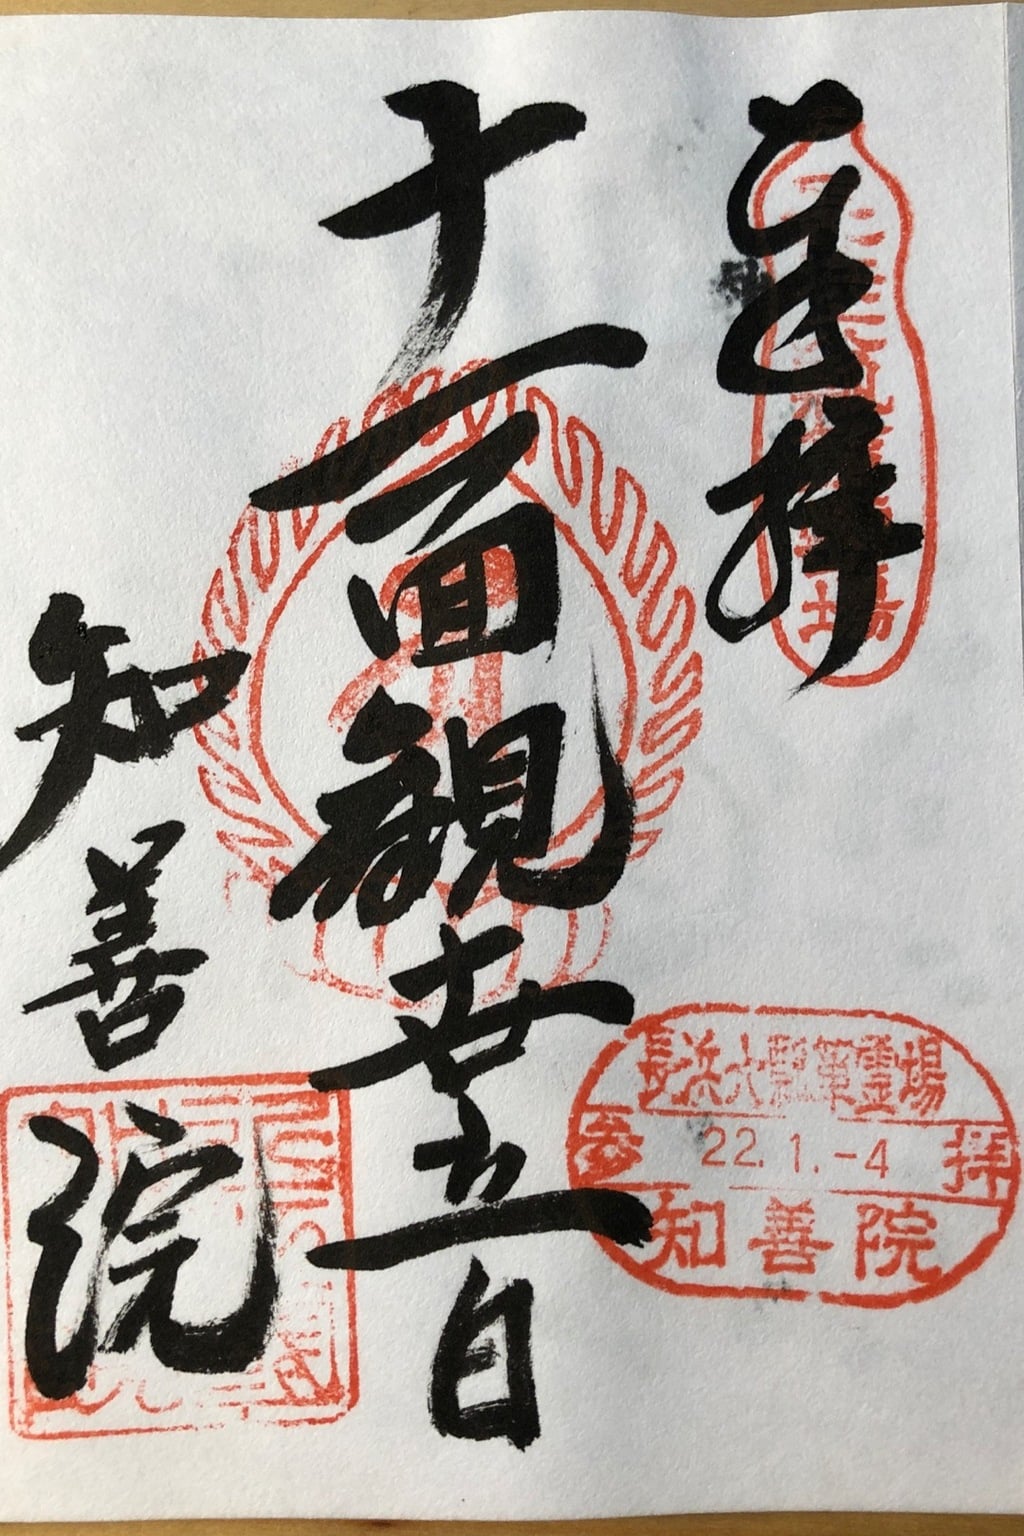 奉拝
十一面観世音
知善院
長浜大黒尊霊場
参 22.1.-4 拝
知善院